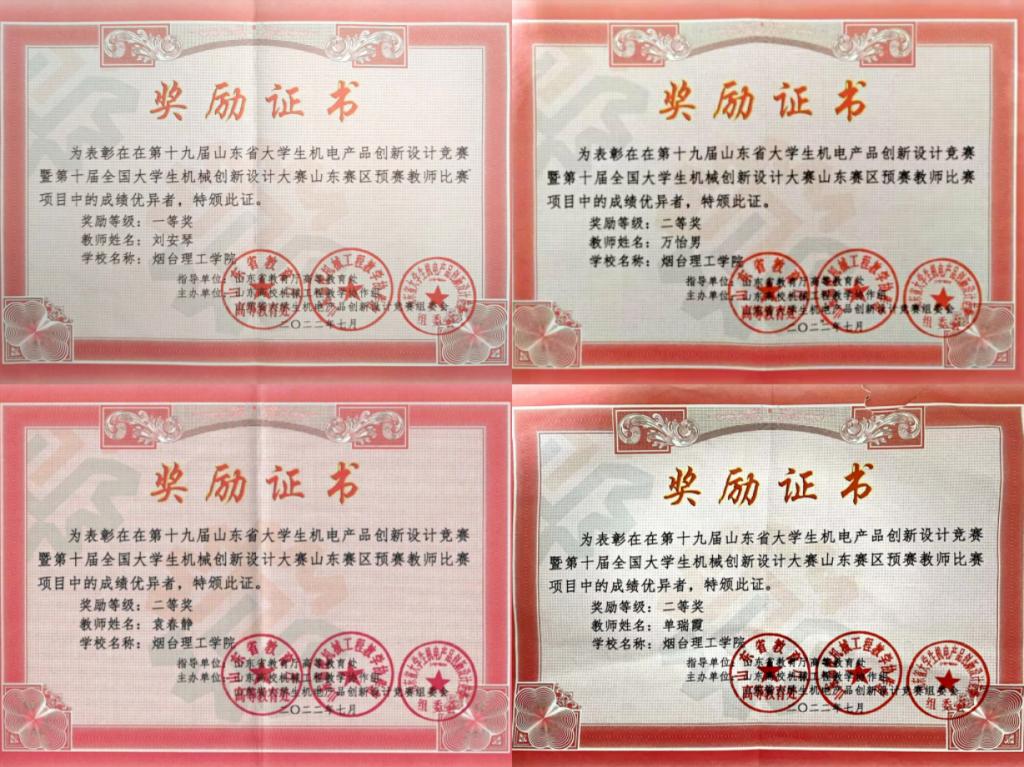 奖励证书
为表彰在在第十九届山东省大学生机电产品创新设计竞赛
暨第十届全国大学生机械创新设计大赛山东赛区预赛教师比赛
项目中的成绩优异者，特颁此证。
奖励等级：一等奖
教师姓名：刘安琴
学校名称：烟台理工学院
指导单位：山东省教育厅高等教育处
主办单位：山东高校机械工程教学协作组
山东省大学生机电产品创新设计竞赛组委会
二〇二二年七月
奖励证书
为表彰在在第十九届山东省大学生机电产品创新设计竞赛
暨第十届全国大学生机械创新设计大赛山东赛区预赛教师比赛
项目中的成绩优异者，特颁此证。
奖励等级：二等奖
教师姓名：万怡男
学校名称：烟台理工学院
指导单位：山东省教育厅高等教育处
主办单位：山东高校机械工程教学协作组
山东省大学生机电产品创新设计竞赛组委会
二〇二二年七月
奖励证书
为表彰在在第十九届山东省大学生机电产品创新设计竞赛
暨第十届全国大学生机械创新设计大赛山东赛区预赛教师比赛
项目中的成绩优异者，特颁此证。
奖励等级：二等奖
教师姓名：袁春静
学校名称：烟台理工学院
指导单位：山东省教育厅高等教育处
主办单位：山东高校机械工程教学协作组
山东省大学生机电产品创新设计竞赛组委会
二〇二二年七月
奖励证书
为表彰在在第十九届山东省大学生机电产品创新设计竞赛
暨第十届全国大学生机械创新设计大赛山东赛区预赛教师比赛
项目中的成绩优异者，特颁此证。
奖励等级：二等奖
教师姓名：单瑞霞
学校名称：烟台理工学院
指导单位：山东省教育厅高等教育处
主办单位：山东高校机械工程教学协作组
山东省大学生机电产品创新设计竞赛组委会
二〇二二年七月